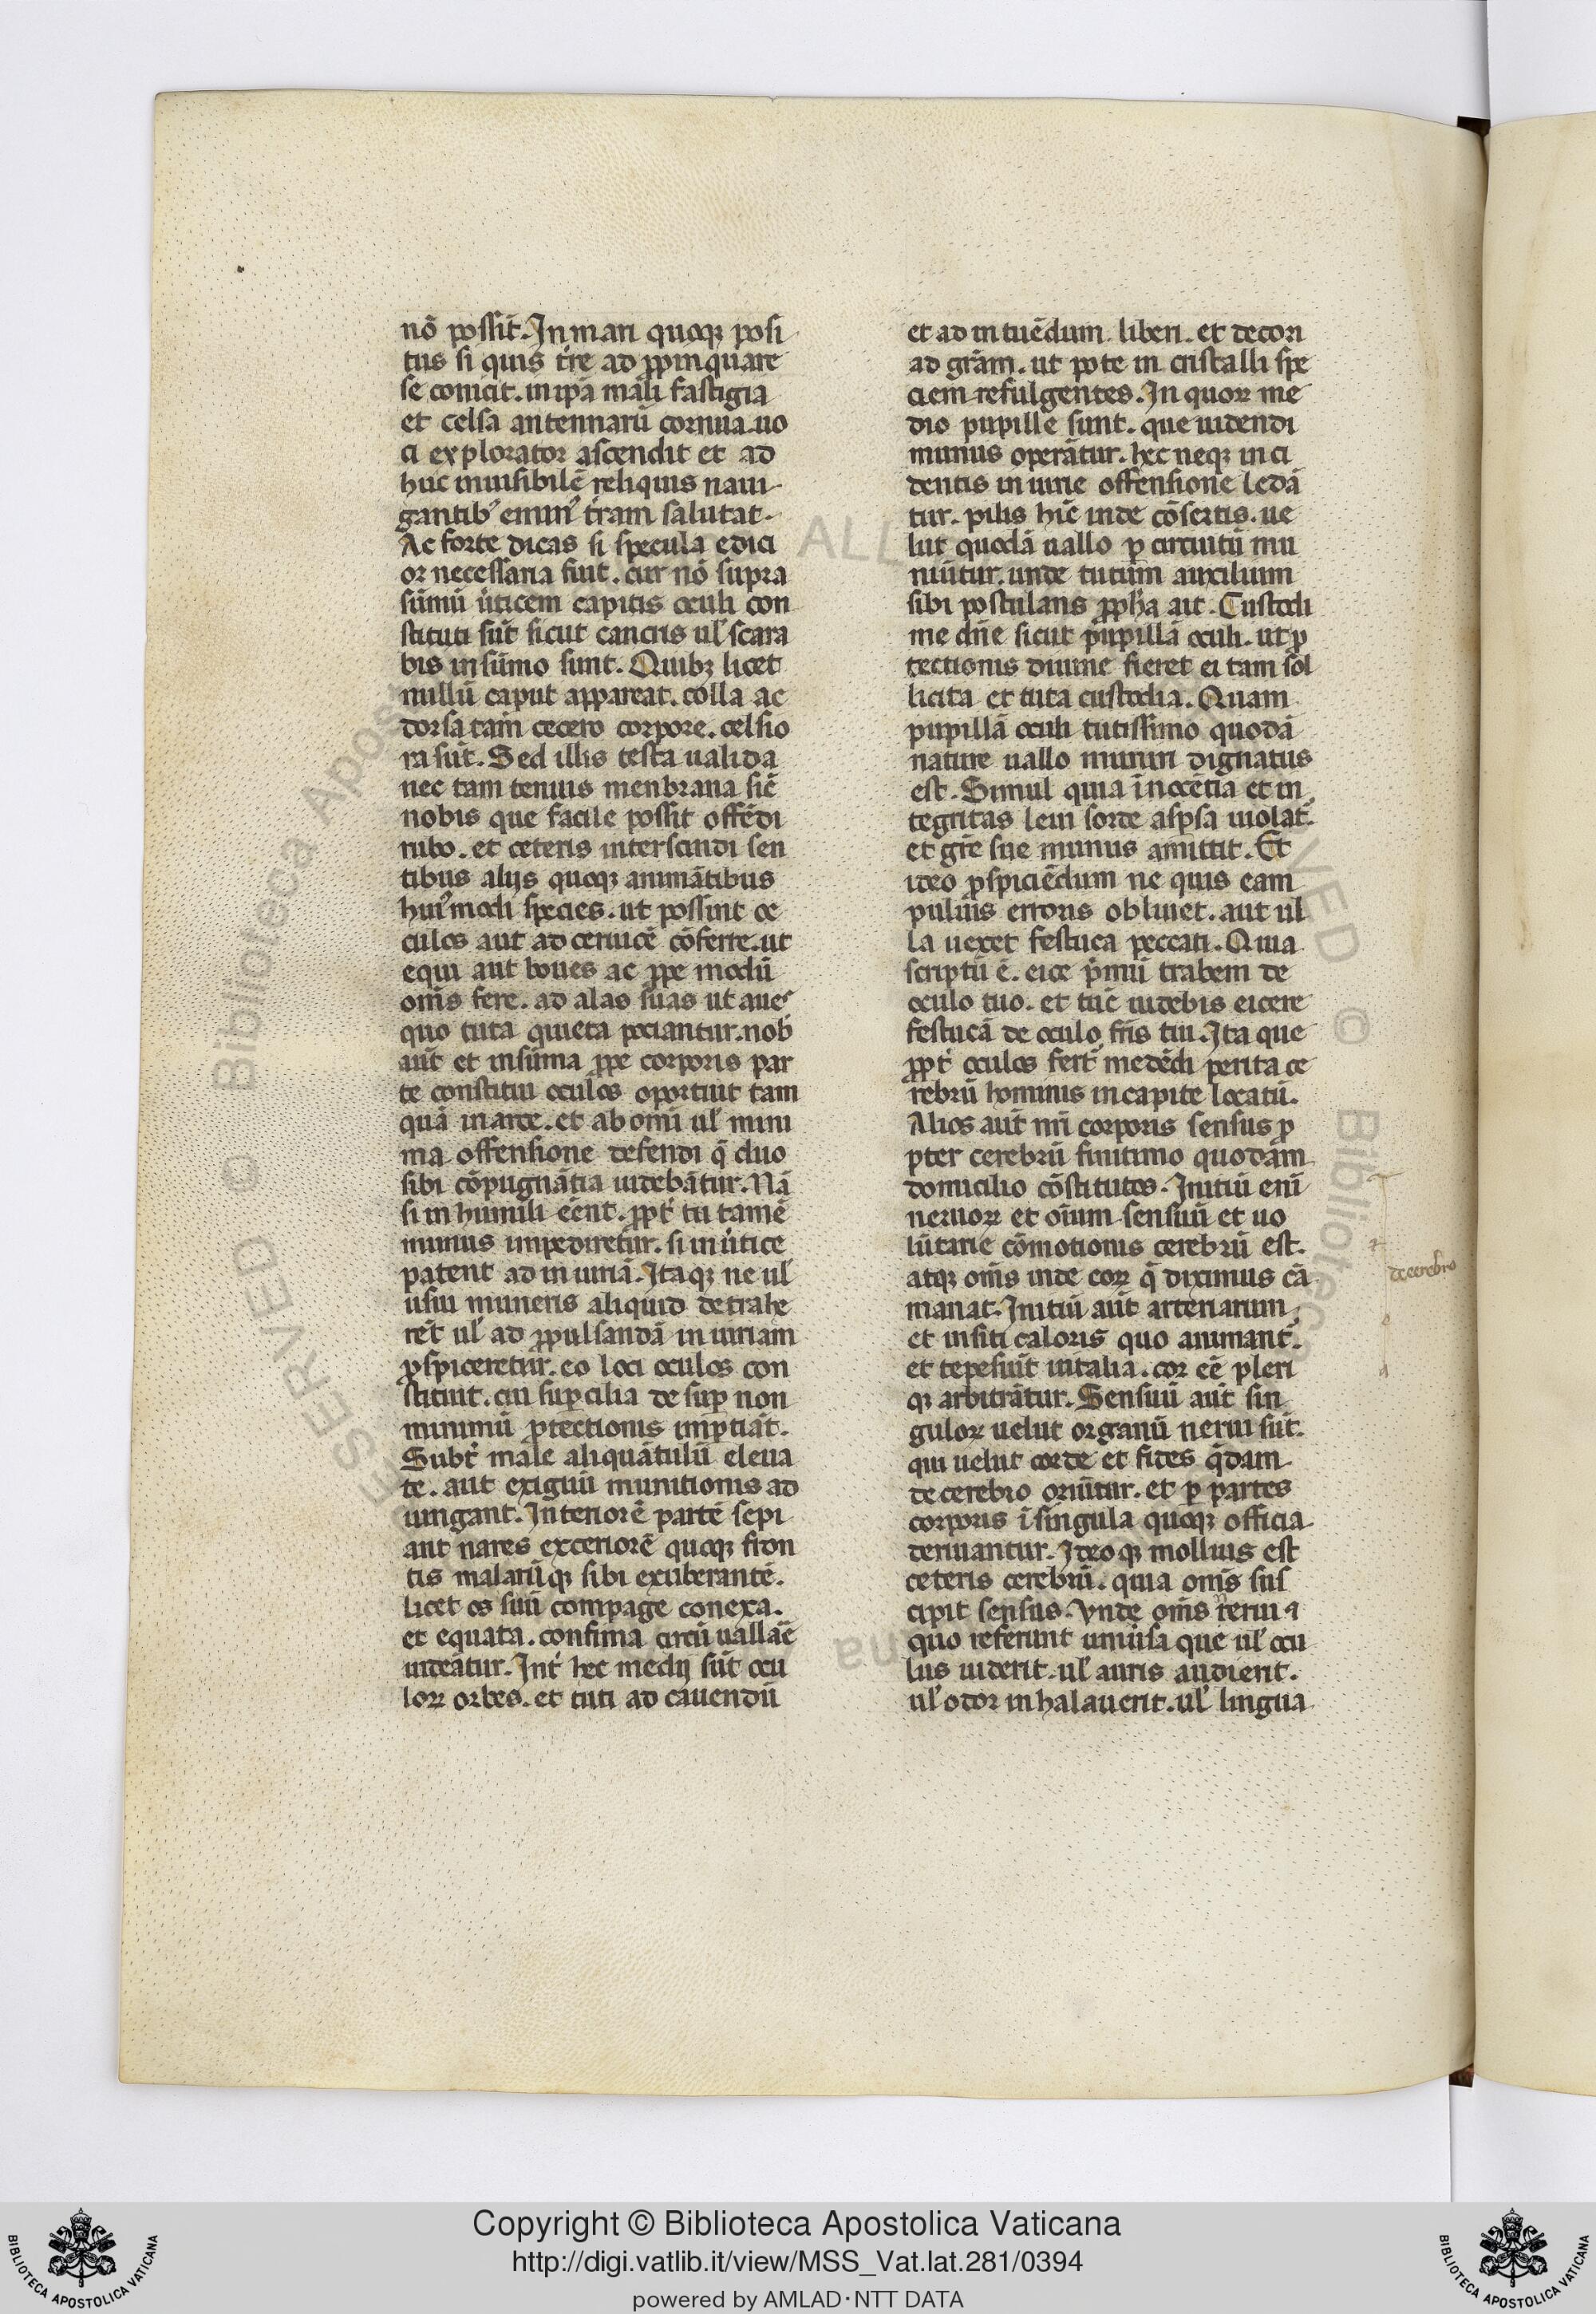 nō possit̄. In mari quoqꝫ posi
tus si quis t̄re ad ꝓpinquare
se conicit. in ip̄a mali fastigia
et celsa antennarū cornua uo
ci explorator ascendit et ad
huc inuisibilē reliquis naui
gantibꝰ eminꝰ t̄ram salutat.
Ac forte dicas si specula edici
or necessaria fuit. cur nō supra
sūmū ūticem capitis oculi con
stituti sūt sicut cancris ul̓ scara
bis in sūmo sunt. Quibꝫ licet
nullū caput appareat. colla ac
dorsa tam̄ cecero corpore. celsio
ra sūt. Sed illis testa ualida
nec tam tenuis menbrana sic̄
nobis que facile possit offēdi
rubo. et ceteris interscindi sen
tibus alijs quoqꝫ animātibus
huiꝰmodi species. ut possint oc
culos aut ad ceruicē cōferre. ut
equi aut boues ac ꝓpe modū
om̄s fere. ad alas suas ut aues
quo tuta quieta pociantur. nob̄
aūt et in sūma ꝓpe corporis par
te constitui oculos oportuit tam
quā in arce. et ab om̄i ul̓ mini
ma offensione defendi q̄ duo
sibi cōpugnātia uidebātur. Nā
si in humili eēnt. ꝓpt̄ tu tamē
munus impediretur. si in ūtice
patent ad iniuriā. Itaqꝫ ne ul̓
usui muneris aliquid detrahe
ret̄ ul̓ ad ꝓpulsandā iniuriam
ꝓspiceretur. eo loci oculos con
stituit. cui suꝑcilia de suꝑ non
minimū ꝓtectionis imꝑtiāt.
Subt̄ male aliquātulū eleua
te. aut exiguū munitionis ad
iungant. Interiorē partē sepi
ant nares exceriorē quoqꝫ fron
tis malarūqꝫ sibi exuberantē.
licet os suū compage conexa.
et equata. confima circūuallaē
uideātur. Int̄ hec medij sūt ocu
loꝝ orbes. et tuti ad cauendū
et ad intuēdum. liberi. et decori
ad grām. ut pote in cristalli spe
ciem refulgentes. In quoꝝ me
dio pupille sunt. que uidendi
munus operātur. hec neqꝫ inci
dentis iniurie offensione ledā
tur. pilis hīc inde cōsertis. ue
lut quodā uallo ꝑ circuitū mu
niūtur. unde tutum auxilium
sibi postulans ꝓph̄a ait. Custodi
me dn̄e sicut pupillā oculi. ut ꝓ
tectionis diuine fieret ei tam sol
licita et tuta custodia. Quam
pupillā oculi tutissimo quodā
nature uallo muniri dignatus
est. Simul quia īnocētia et in
tegritas leui sorde asꝑsa uiolat̄.
et grē sue munus amittit. Et
ideo ꝓspiciēdum ne quis eam
puluis erroris obliniet. aut ul
la uexet festuca peccati. Quia
scriptū ē. eice p̄mū trabem de
oculo tuo. et tūc uidebis eicere
festucā de oculo fr̄is tui. Itaque
ꝓpt̄ oculos fert̄ medēdi perita ce
rebrū hominis in capite locatū.
Alios aūt nr̄i corporis sensus ꝓ
pter cerebrū finitimo quodam
domicilio cōstitutos. Initiū enī
neruoꝝ et oīum sensuū et uo
lūtarie cōmotionis cerebrū est.
atqꝫ om̄s inde coꝝ q̄ diximus cā
manat. Initiū aūt arteriarum
et insiti caloris quo animant̄.
et tepefiūt uitalia. cor eē pleri
qꝫ arbitrātur. Sensuū aūt sin
guloꝝ uelut organū nerui sūt.
qui uelut corde et fides q̄dam
de cerebro oriūtur. et ꝑ partes
corporis ī singula quoqꝫ officia
deriuantur. Ideoqꝫ mollius est
ceteris cerebrū. quia om̄s sus
cipit sensus. Vnde om̄s nerui ⁊
quo referunt uniūsa que ul̓ ocu
lus uiderit. ul̓ auris audierit.
ul̓ odor inhalauerit. ul̓ lingua
de cerebro
Copyright © Biblioteca Apostolica Vaticana
http://digi.vatlib.it/view/MSS_Vat.lat.281/0394
powered by AMLAD·NTT DATA
BIBLIOTECA APOSTOLICA VATICANA
BIBLIOTECA APOSTOLICA VATICANA